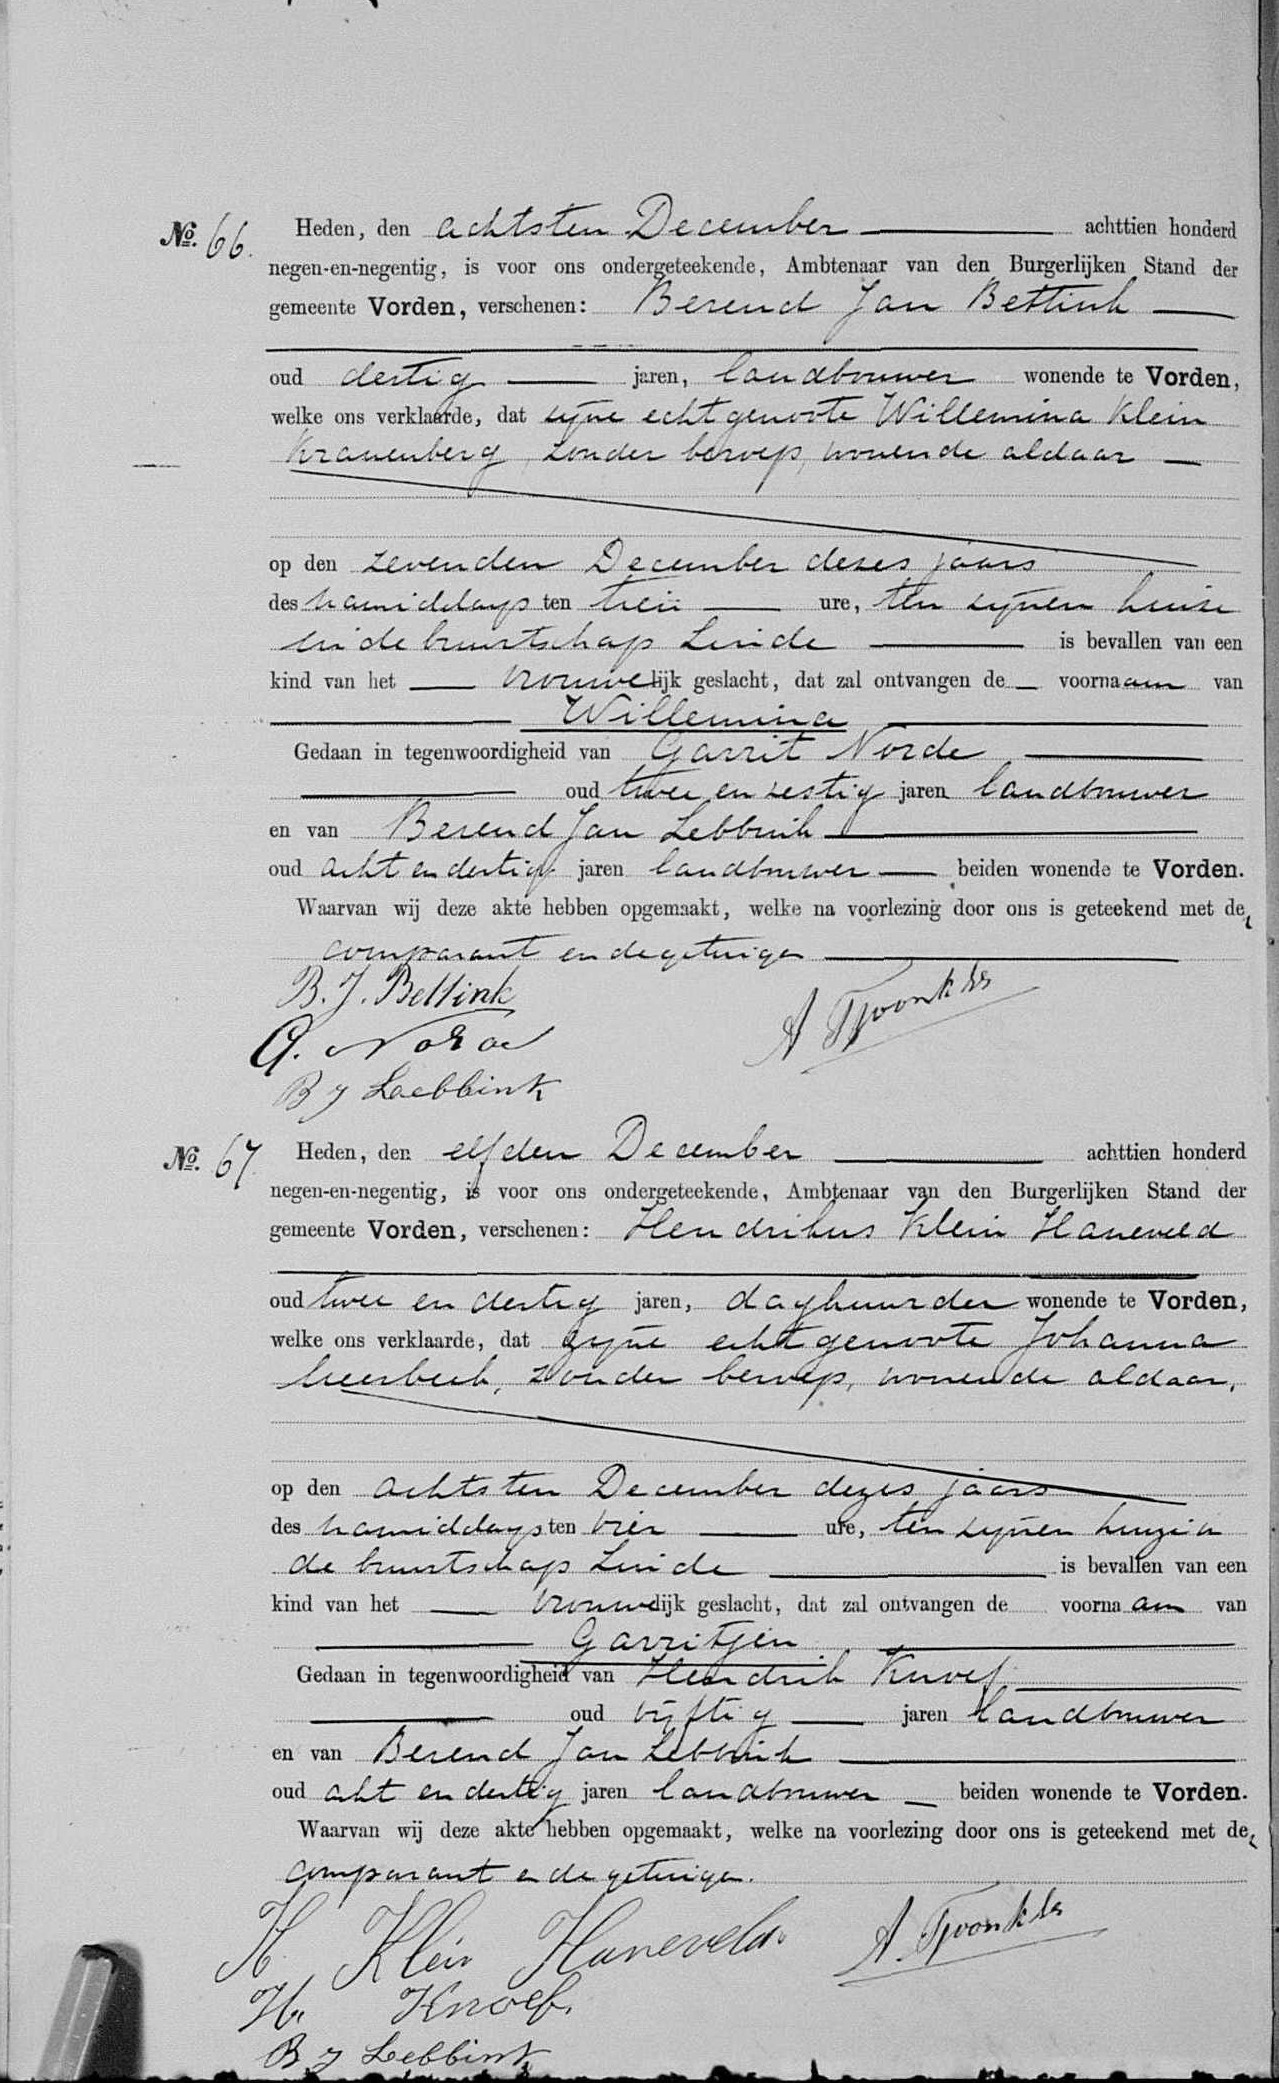 No. 66. Heden, den achtsten December achttien honderd
negen-en-negentig, is voor ons ondergeteekende, Ambtenaar van den Burgerlijken Stand der
gemeente Vorden, verschenen: Berend Jan Bettink
oud dertig jaren, landbouwer wonende te Vorden,
welke ons verklaarde, dat zijne echtgenoote Willemina Klein
Kranenberg, zonder beroep, wonende aldaar
op den zevenden December dezes jaars
des namiddags ten tien ure, ten zijnen huize
in de buurtschap Linde is bevallen van een
kind van het vrouwelijk geslacht, dat zal ontvangen de voornaam van
Willemina
Gedaan in tegenwoordigheid van Garrit Norde
oud twee en zestig jaren landbouwer
en van Berend Jan Lebbink
oud acht en dertig jaren landbouwer beiden wonende te Vorden.
Waarvan wij deze akte hebben opgemaakt, welke na voorlezing door ons is geteekend met de,
comparant en de getuigen
B. J. Bettink
G. Norde
B J Loebbink
No. 67. Heden, den elfden December achttien honderd
negen-en-negentig, is voor ons ondergeteekende, Ambtenaar van den Burgerlijken Stand der
gemeente Vorden, verschenen: Hendrikus Klein Haneveld
oud twee en dertig jaren, daghuurder wonende te Vorden,
welke ons verklaarde, dat zijne echtgenoote Johanna
zonder beroep, wonende aldaar,
op den achtsten December dezes jaars
des namiddags ten vier ure, ten zijnen huize in
de buurtschap Linde is bevallen van een
kind van het vrouwelijk geslacht, dat zal ontvangen de voornaam van
Garritjen
Gedaan in tegenwoordigheid van Hendrik Knoef
oud vijftig jaren landbouwer
en van Berend Jan Lebbink
oud acht en dertig jaren landbouwer beiden wonende te Vorden.
Waarvan wij deze akte hebben opgemaakt, welke na voorlezing door ons is geteekend met de,
comparant en de getuigen.
H Klein Haneveld
H. Knoef.
B J Lebbink